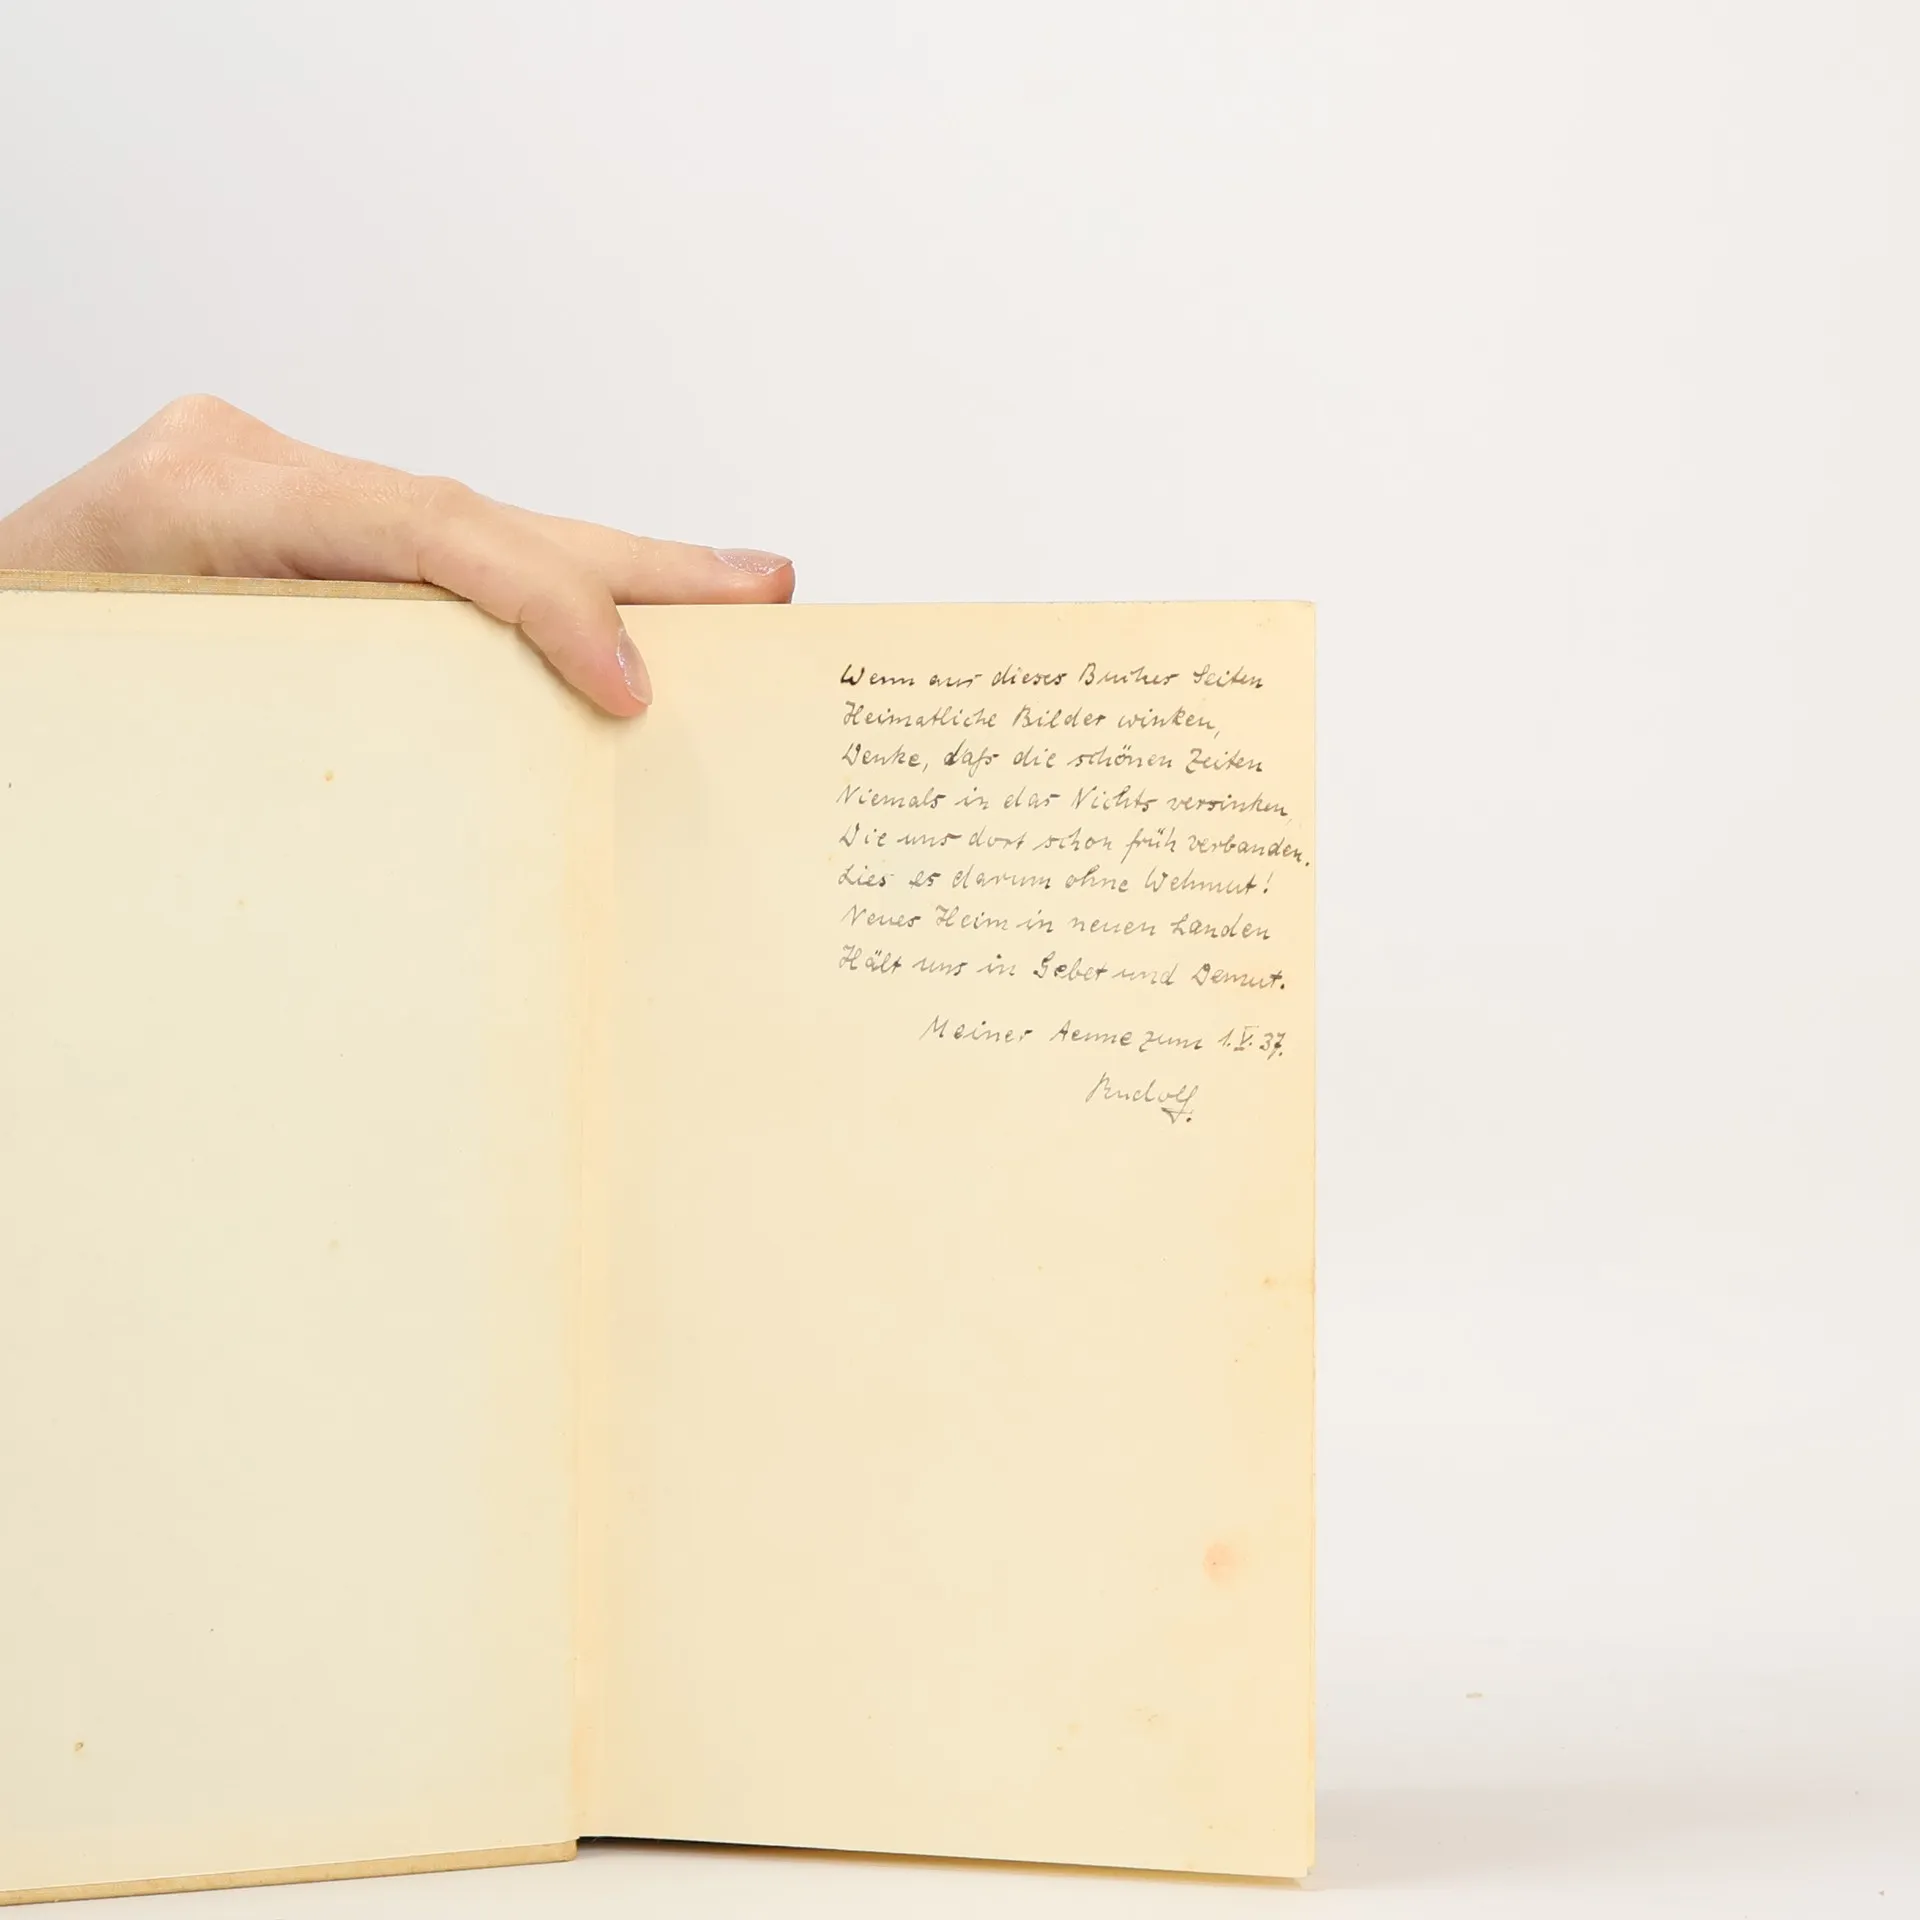 Wenn aus dieses Buches Seiten
Heimatliche Bilder winken,
Denke, daß die schönen Zeiten
Niemals in das Nichts versinken,
Die uns dort schon früh verbanden.
Lies es darum ohne Wehmut!
Neues Heim in neuen Landen
Hält uns in Gebet und Demut.
Meiner Aenne zum 1.V.37.
Rudolf.